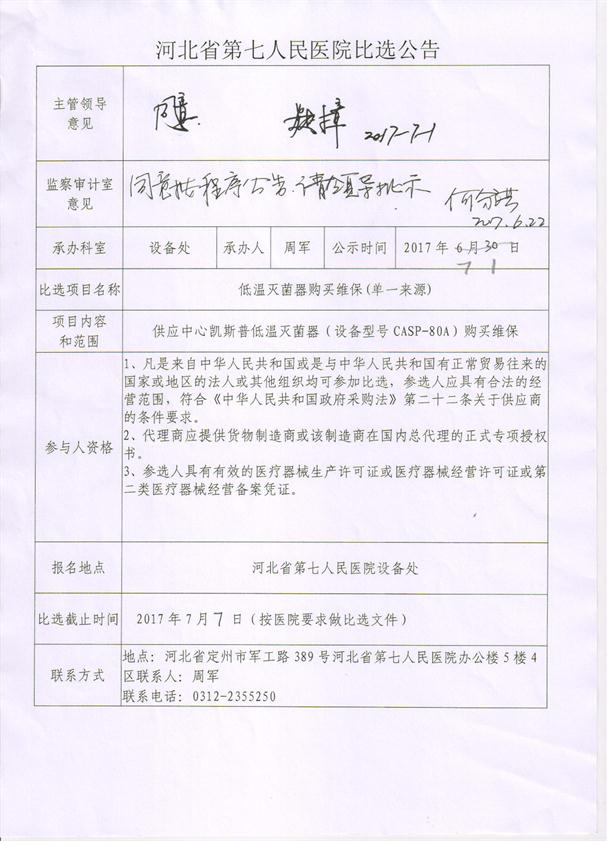 河北省第七人民医院比选公告
主管领导
意见
同意.
2017-7-1
监察审计室
意见
同意按程序公告.请领导批示
2017.6.22
承办科室 设备处 承办人 周军 公示时间 2017年6月30日
7 1
比选项目名称 低温灭菌器购买维保(单一来源)
项目内容
和范围
供应中心凯斯普低温灭菌器（设备型号CASP-80A）购买维保
参与人资格
1、凡是来自中华人民共和国或是与中华人民共和国有正常贸易往来的
国家或地区的法人或其他组织均可参加比选，参选人应具有合法的经
营范围，符合《中华人民共和国政府采购法》第二十二条关于供应商
的条件要求。
2、代理商应提供货物制造商或该制造商在国内总代理的正式专项授权
书。
3、参选人具有有效的医疗器械生产许可证或医疗器械经营许可证或第
二类医疗器械经营备案凭证。
报名地点 河北省第七人民医院设备处
比选截止时间 2017年7月7日（按医院要求做比选文件）
联系方式
地点：河北省定州市军工路389号河北省第七人民医院办公楼5楼4
区联系人：周军
联系电话：0312-2355250